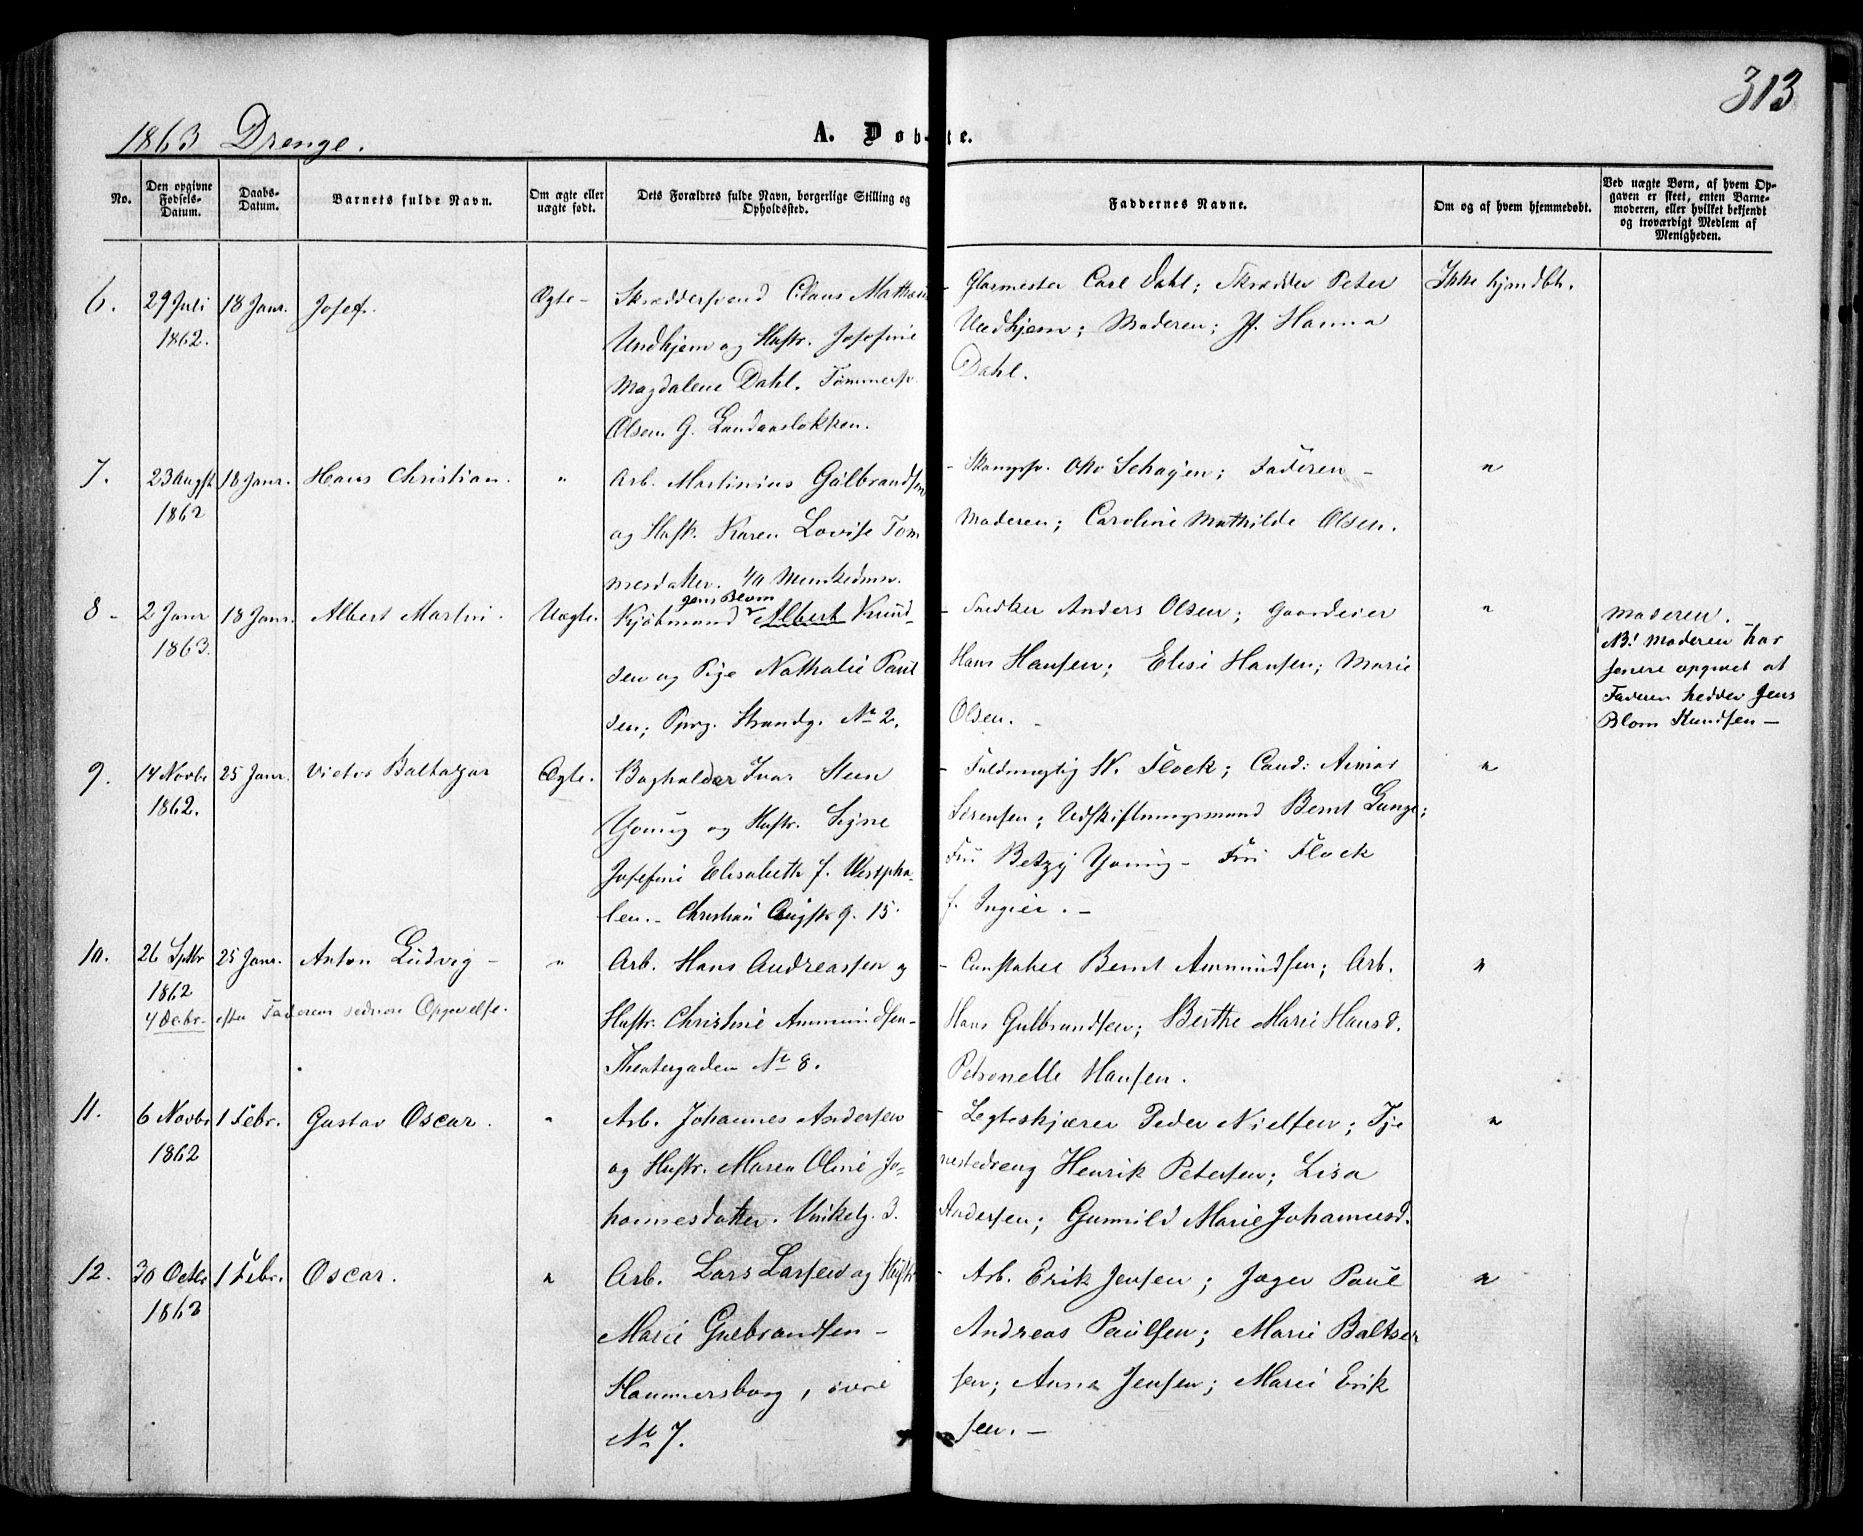 313
1863 Drenge.
A. Døbte.
No.
Den opgivne Fødsels-Datum.
Daabs-Datum.
Barnets fulde Navn.
Om ægte eller uægte født.
Dets Forældres fulde Navn, borgerlige Stilling og Opholdssted.
Faddernes Navne.
Om og af hvem hjemmedøbt.
Ved uægte Børn, af hvem Opgaven er skeet, enten Barnemoderen, eller hvilket bekjendt og troværdigt Medlem af Menigheden.
6. 29 Juli 18 Janr. Josef. Ægte-
1862.
Skræddersvend Claus Mathæus
Undhjem og Hustr. Josefine
Magdalene Dahl. Tømmersv.
Olsen G. Landaasløkken.
Glarmester Carl Dahl; Skrædder Peter
Undhjem; Moderen; Jf. Hanna
Dahl.
Ikke hjmdbt.
7. 23 Augst 18 Janr. Hans Christian. "
1862
Arb. Martinius Gulbrandsen
og Hust. Karen Lovise Tom
mesdatter. 40 Munkedmv.
Otto Schøyen; Faderen -
Moderen; Caroline Mathilde Olsen.
"
8 - 2 Janr 18 Janr. Albert Martin. Uægte.
1863.
Jens Blom
Kjøbmand Albert Knud-
sen og Pige Nathalie Paul
sen; Pprv. Strandg. No 2.
- Snedker Anders Olsen; Gaardeier
Hans Hansen; Elise Hansen; Marie
Olsen. -
"
Moderen.
NB! Moderen har
senere opgivet at
Faderen hedder Jens
Blom Knudsen -
9. 14 Novbr 25 Janr. Victor Baltazar Ægte.
1862.
Bogholder Ivar Steen
Young og Hustr. Signe
Josefine Elisabeth f. Westpha-
len. - Christian Augsts g. 15.
- Fuldmægtig W. Flock; Cand: Aimar
Sørensen; Udskiftningsmand Bernt Lunge;
Fru Betzy Young - Fru Flock
f. Ingier. -
"
10. 26 Sptbr 25 Janr. Anton Ludvig - "
1862
4 Decbr. efter Faderens sednere Opgivelse.
Arb. Hans Andreassen og
Hustr. Christine Ammundsen-
Theatergaden No 8.
- Constabel Bernt Ammundsen; Arb.
Hans Gulbrandsen; Berthe Marie Hansd.
Petronelle Hansen.
"
11. 6 Novbr 1 Febr. Gustav Oscar. "
1862
Arb. Johannes Andersen
og Hustr. Maren Oline Jo-
hannesdatter. Vinkelg. 3.
- Lægteskjærer Peder Nielsen; Tje
nestedreng Henrik Petersen; Lisa
Andersen; Gunnild Marie Johannesd.
"
12. 30 Octbr 1 Febr. Oscar. "
1862
Arb. Lars Larsen og Hustr
Marie Gulbrandsen -
Hammersborg, øvre
No 7.
- Arb. Erik Jensen; Jæger Paul
Andreas Paulsen; Marie Baltser
sen; Anna Jensen; Marie Erik
sen. -
"